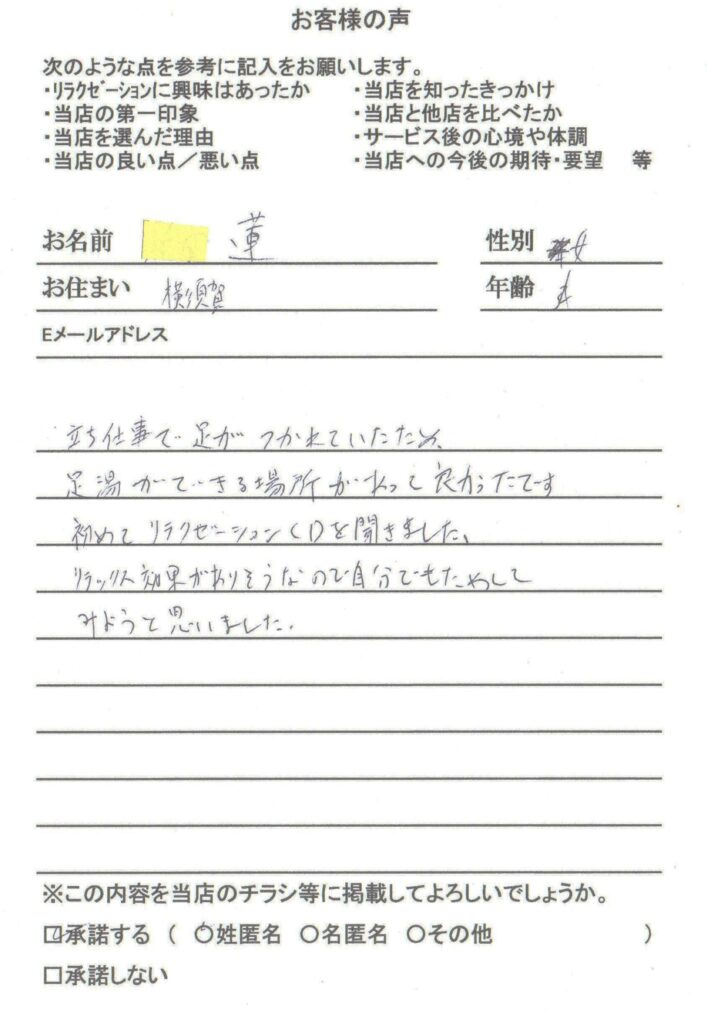 お客様の声
次のような点を参考に記入をお願いします。
・リラクゼーションに興味はあったか ・当店を知ったきっかけ
・当店の第一印象 ・当店と他店を比べたか
・当店を選んだ理由 ・サービス後の心境や体調
・当店の良い点／悪い点 ・当店への今後の期待・要望 等
お名前 蓮 性別 女
お住まい 横須賀 年齢
Eメールアドレス
立ち仕事で足がつかれていたため、
足湯ができる場所があって良かったです
初めてリラクゼーションCDを聞きました。
リラックス効果がありそうなので自分でもためして
みようと思いました。
※この内容を当店のチラシ等に掲載してよろしいでしょうか。
☑承諾する （ ○姓匿名 ○名匿名 ○その他 ）
□承諾しない